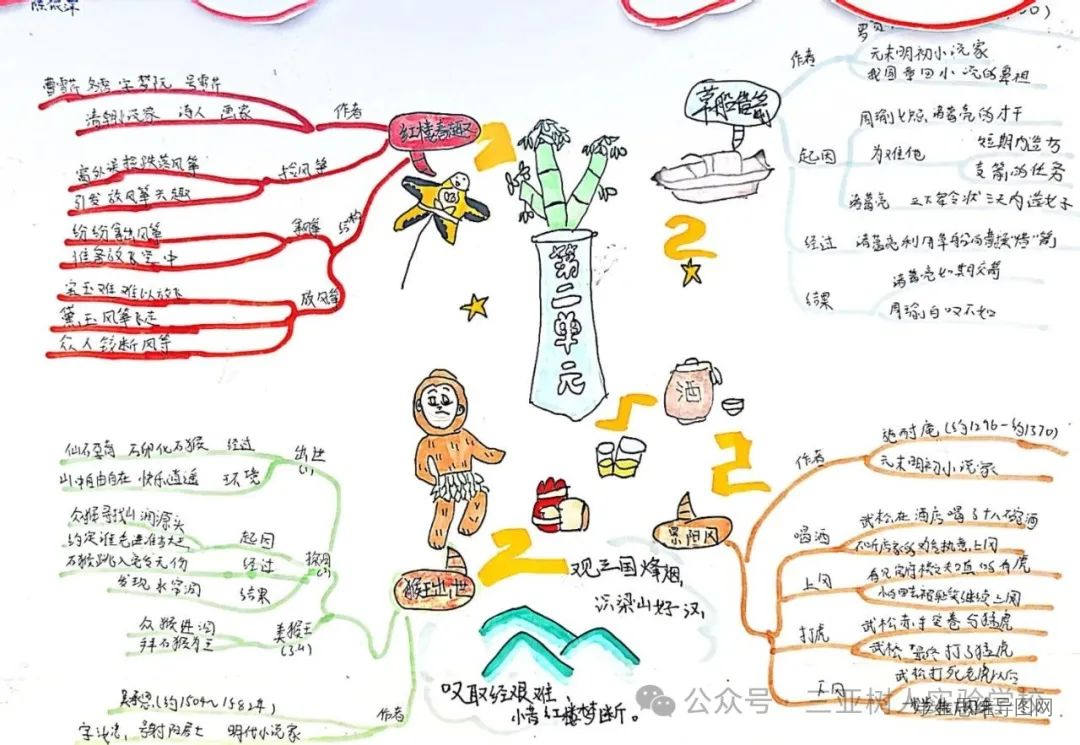 红楼春趣
作者
曹雪芹 名霑 字梦阮 号雪芹
清朝小说家 诗人 画家
捡风筝
窗外
风筝
引发放风筝去趣
拿风筝
纷纷拿出风筝
准备放飞空中
放风筝
宝玉难难以放飞
黛玉风筝飞走
众人铰断风筝
第二单元
草船借箭
作者
元末明初小说家
我国章回小说的鼻祖
起因
周瑜妒忌诸葛亮的才干
为难他
短期内造十万
支箭的任务
诸葛亮 立下军令状 三天内造
经过
诸葛亮利用草船向曹操“借”箭
结果
诸葛亮如期交箭
周瑜自叹不如
酒
猴王出世
出世
(1)
仙石孕育 石卵化石猴 经过
山中自由自在 快乐逍遥 环境
众猴寻找山涧源头
起因
经过
结果
发现水帘洞
美猴王
(3.4)
众猴进洞
拜石猴为王
作者
吴承恩(约1504~1582年)
号射阳居士 明代小说家
景阳冈
作者
施耐庵(约1296-约1370)
元末明初小说家
喝酒
武松在酒店喝了十八碗酒
不听店家的劝告执意上冈
上冈
继续上冈
打虎
武松赤手空拳与猛虎
武松最终打了猛虎
下冈
武松打死老虎以后
观三国烽烟，
识梁山好汉，
叹取经艰难，
惜红楼梦断。
公众号·三亚树人实验学校
思维导图网